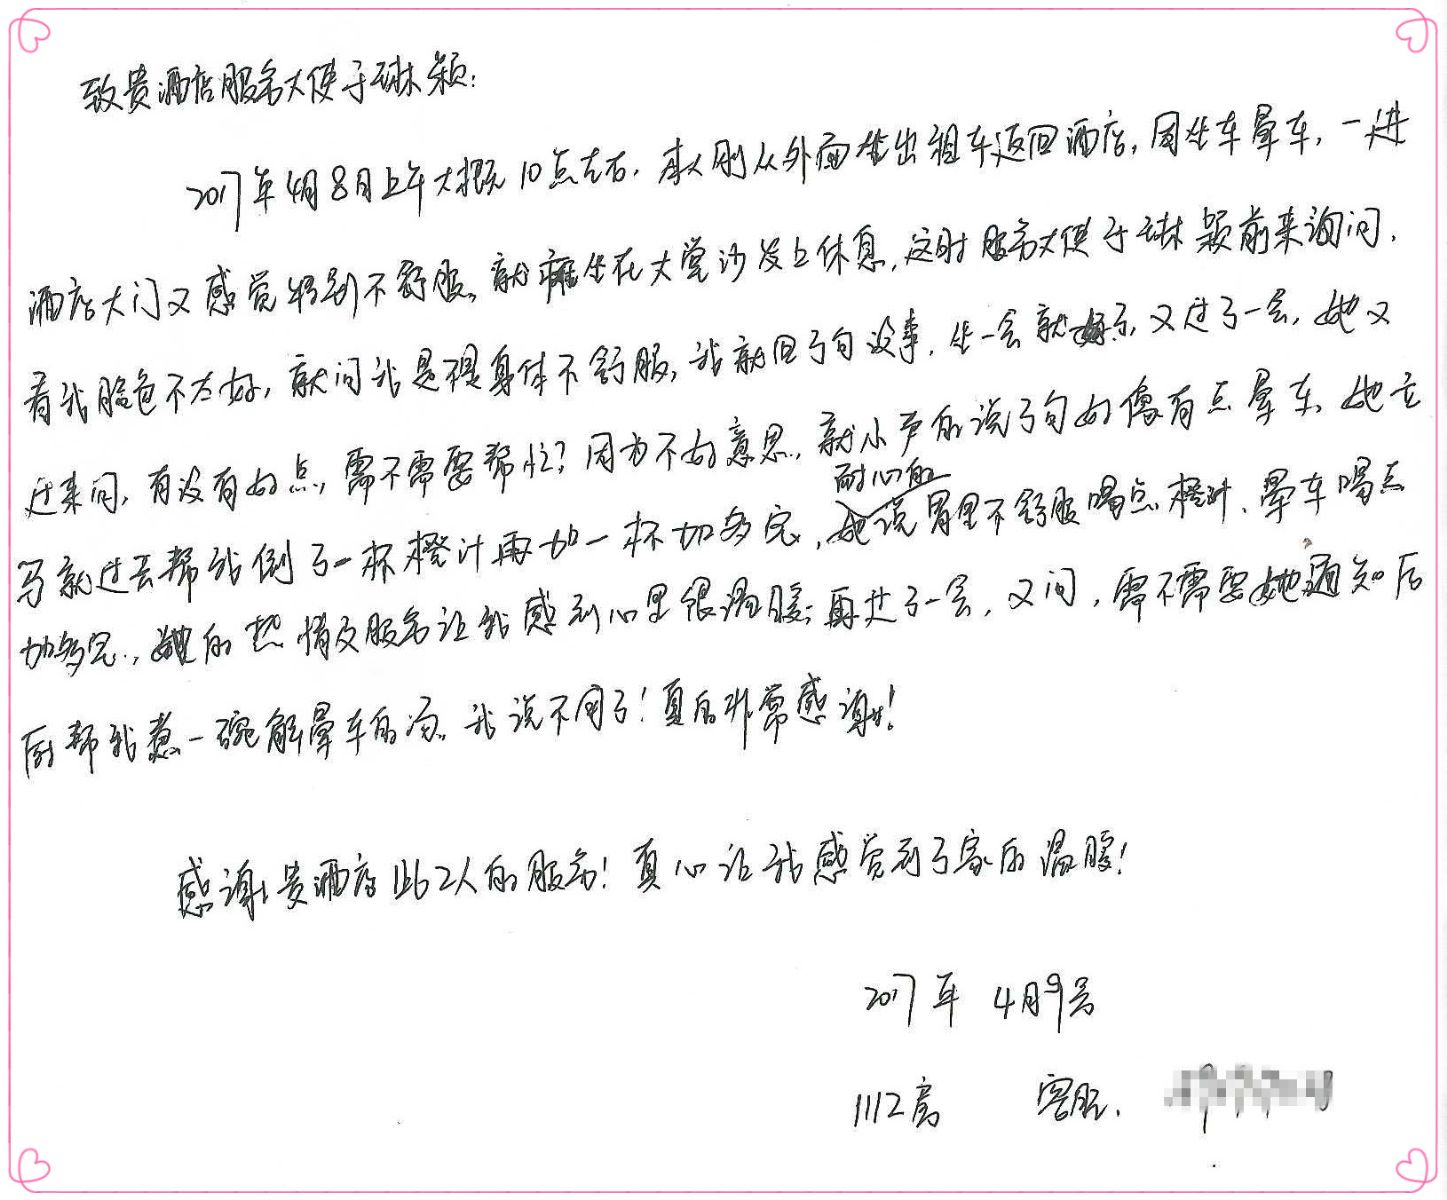 致贵酒店服务大使于琳颖:
2017年4月8日上午大概10点左右,本人刚从外面坐出租车返回酒店,因坐车晕车,一进
酒店大门又感觉特别不舒服,就瘫坐在大堂沙发上休息,这时服务大使于琳颖前来询问,
看我脸色不太好,就问我是不是身体不舒服,我就回了句没事,坐一会就好了,又过了一会,她又
过来问,有没有好点,需不需要帮忙?因为不好意思,就小声的说了句好像有点晕车,她立
耐心的
马就过去帮我倒了一杯橙汁再加一杯加多宝,她说胃里不舒服喝点橙汁、晕车喝点
加多宝,她的热情及服务让我感到心里很温暖;再过了一会,又问,需不需要她通知后
厨帮我煮一碗解晕车的汤,我说不用了!真的非常感谢!
感谢贵酒店
人的服务!真心让我感觉到了家的温暖!
2017年 4月9号
1112房 客服.